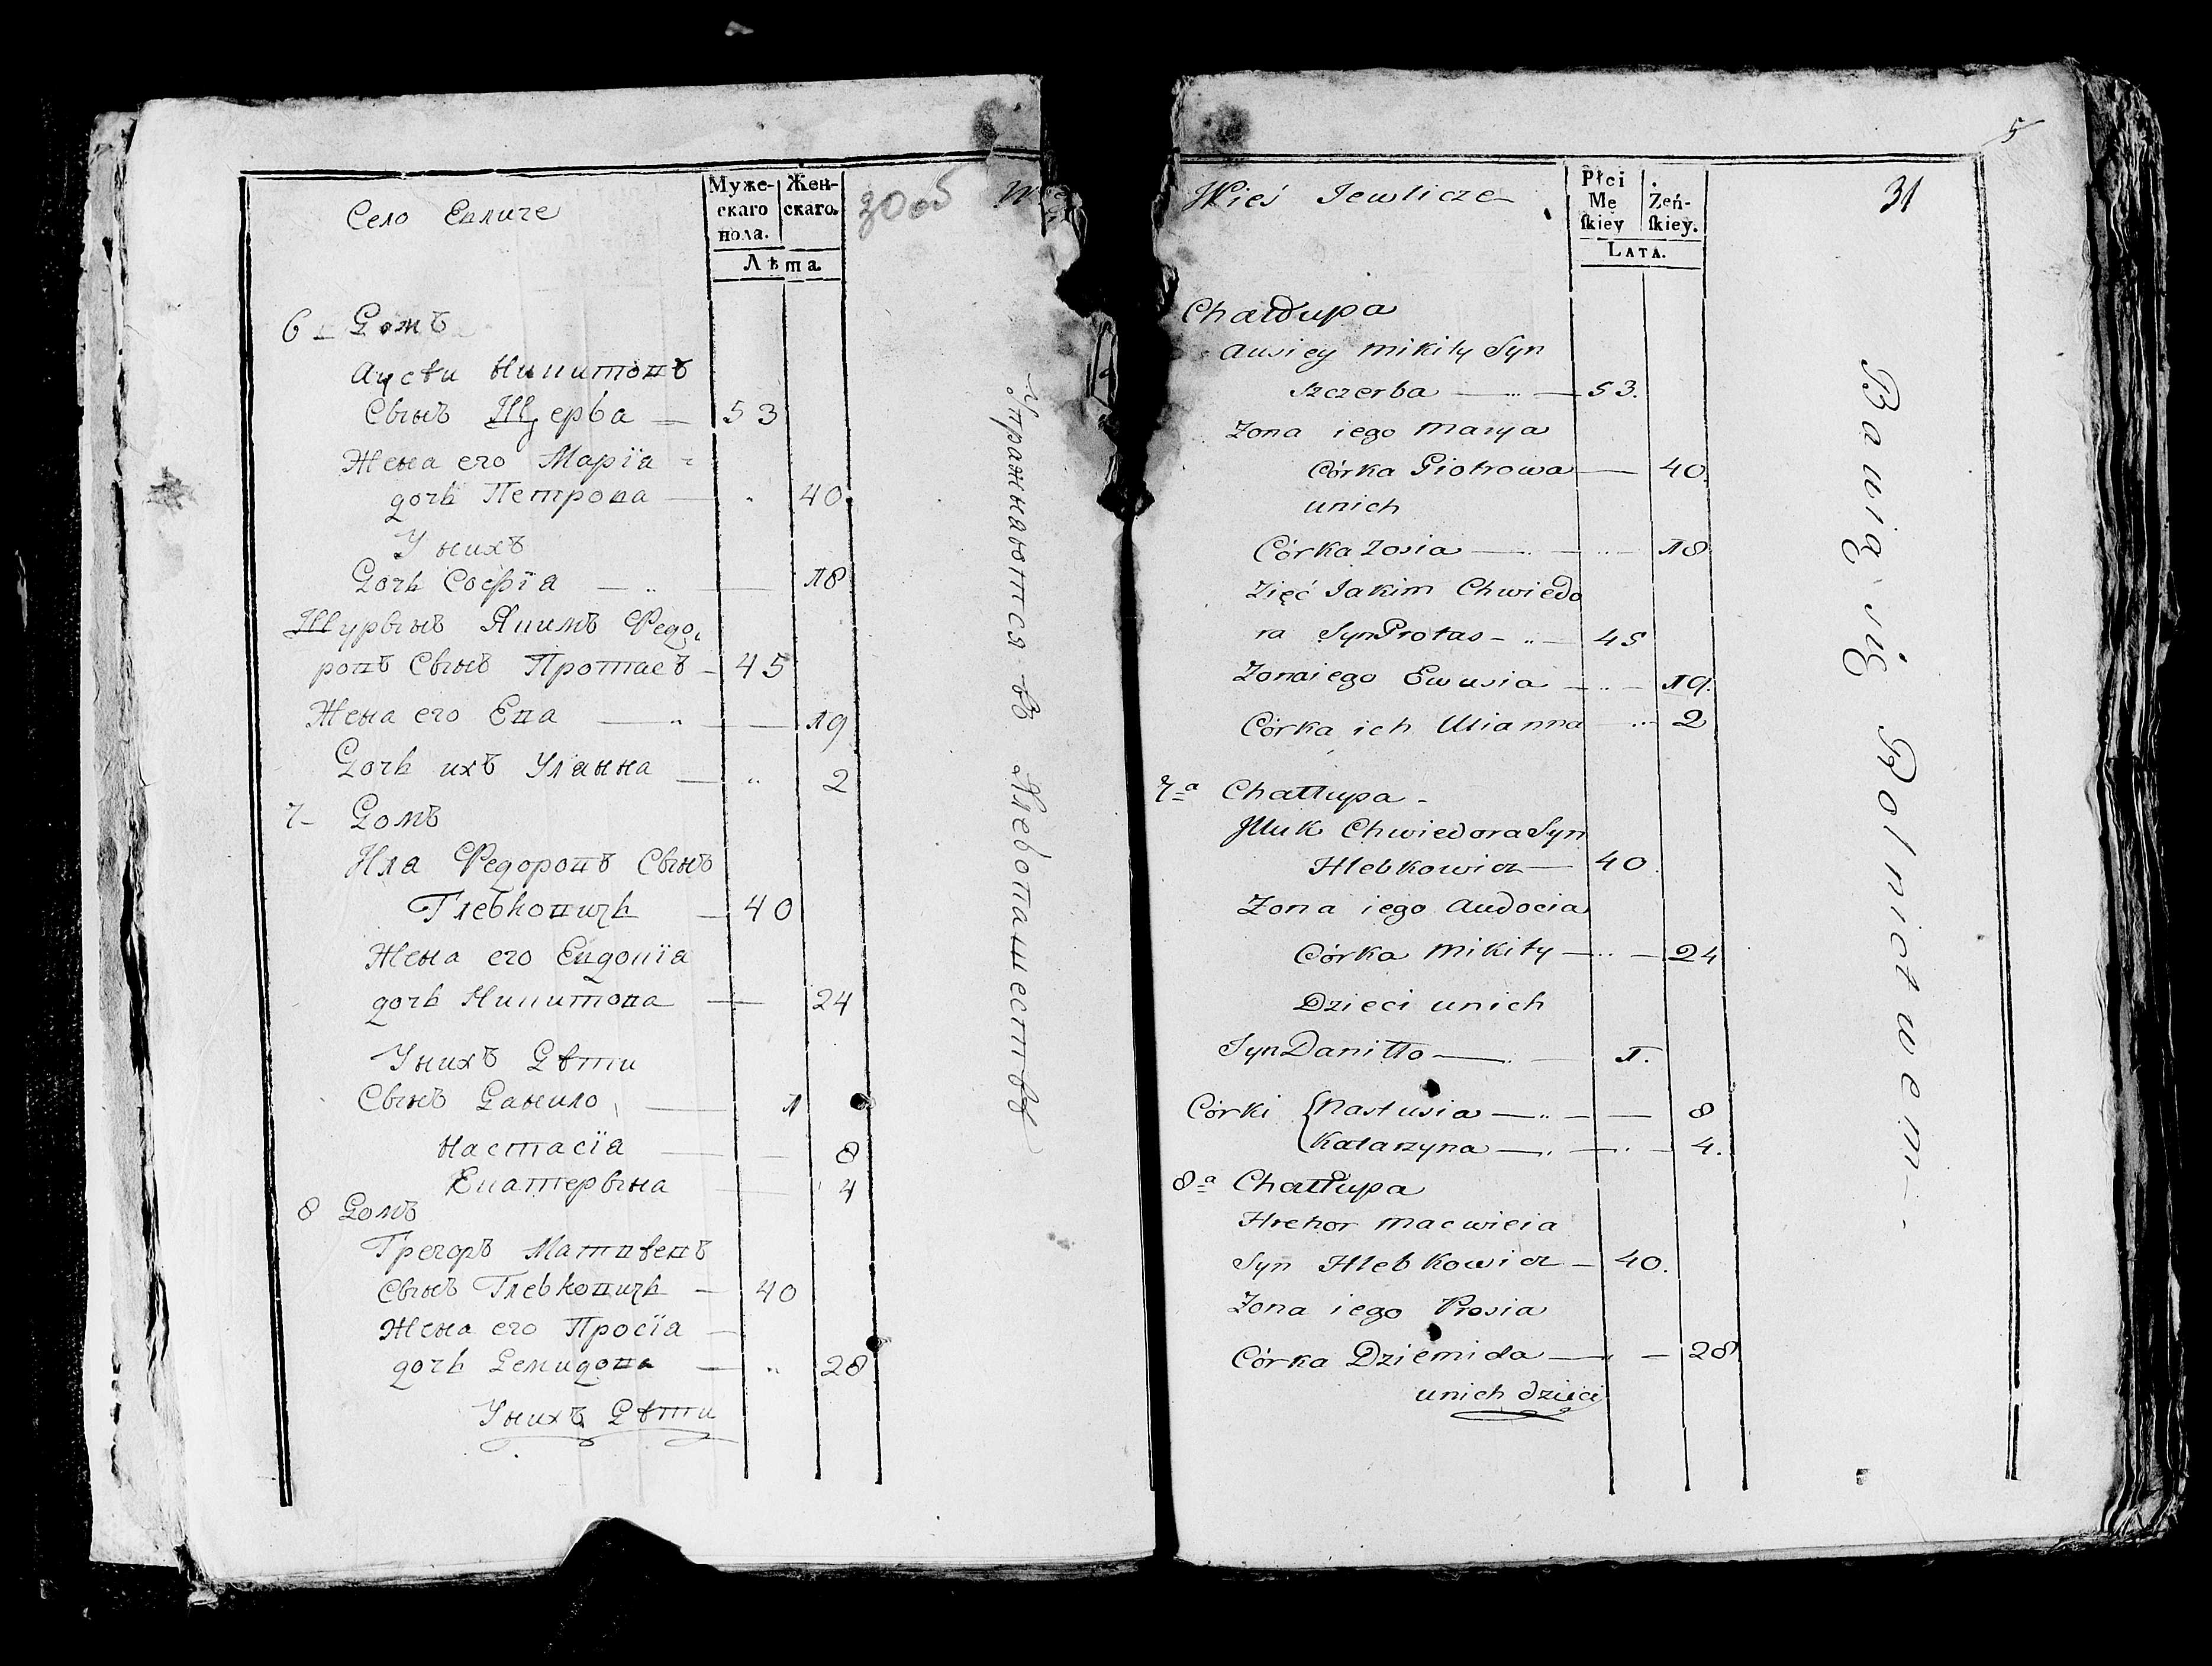 Село Евличе
Муже-
скаго
пола.
Жен-
скаго.
Лѣта.
30об
6 Домъ
Аусѣи Никитовъ
Сынъ Щерба — 53
Жена его Марїа
дочь Петрова — 40
У нихъ
Дочь Софїа — 18
Шурынъ Якимъ Федо
ровъ Сынъ Протасъ — 45
Жена его Ева — 19
Дочь ихъ Уланна — 2
7 Домъ
Иля Федоровъ Сынъ
Глебковичь — 40
Жена его Евдокїа
дочь Никитова — 24
У нихъ Дѣти
Сынъ Данило — 1
Настасїа — 8
Екатерына — 4
8 Домъ
Грегоръ Матвѣевъ
Сынъ Глебковичь — 40
Жена его Просїа —
дочь Демидова — 28
У нихъ Дѣти
Упражнаются въ Хлебопашествѣ
5
Wieś Iewlicze
Płci
Mę
ſkiey
Żeń-
ſkiey.
LATA.
31
Chałłupa
Ausiey Mikity Syn
Szczerba — 53.
Zona iego Marya
Córka Piotrowa — 40.
unich
Córka Zosia — 18
Zięć Iakim Chwiedo
ra Syn Protas — 45
Zona iego Ewusia — 19.
Córka ich Ulianna — 2
7a Chałłupa
Illuk Chwiedora Syn
Hlebkowicz — 40.
Zona iego Audocia
Córka Mikity — 24
Dzieci unich
Syn Daniłło — 1.
Córki { Nastusia — 8
Katarzyna — 4.
8a Chałłupa
Hrehor Macwieia
Syn Hlebkowicz — 40.
Zona iego Prosia
Córka Dziemida — 28
unich dzieci
Bawią się Rolnictwem